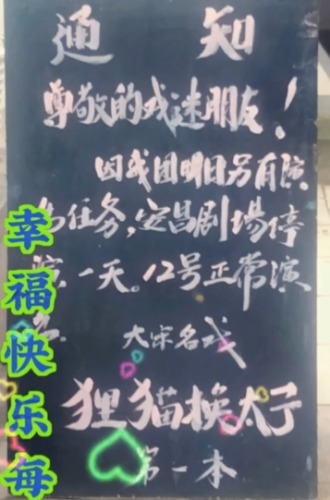 通 知
尊敬的戏迷朋友！
因我团明日另有演
出任务，定昌剧場停
演一天。12号正常演
出。
大宋名戏
狸猫换太子
第一本
幸福快乐每